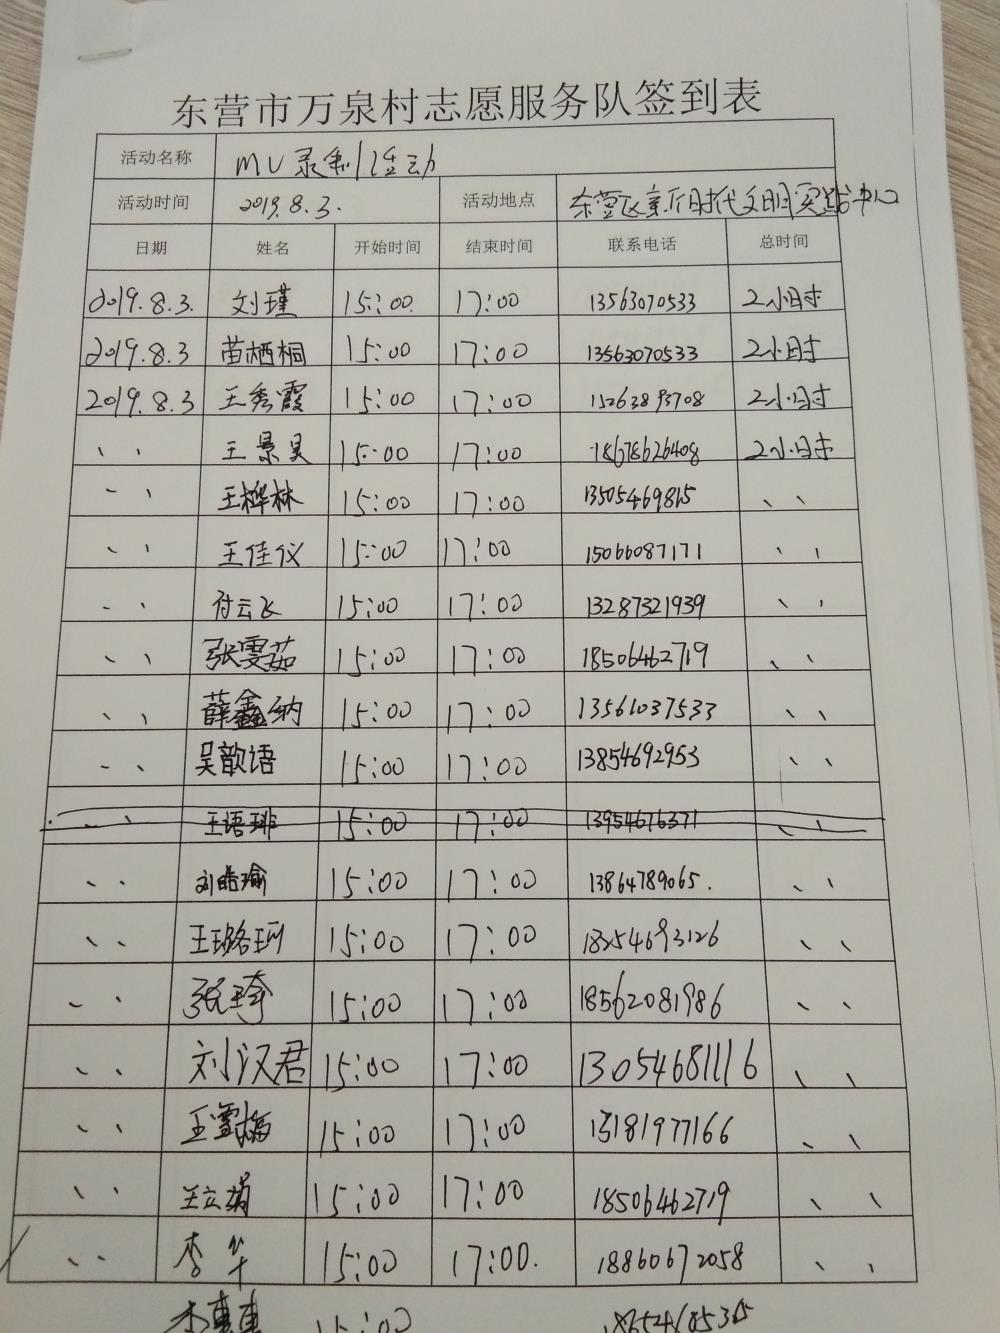 东营市万泉村志愿服务队签到表
活动名称 MV录制活动
活动时间 2019.8.3. 活动地点 东营区新时代文明实践中心
日期 姓名 开始时间 结束时间 联系电话 总时间
2019.8.3. 刘瑾 15:00 17:00 13563070533 2小时
2019.8.3 苗栖桐 15:00 17:00 13563070533 2小时
2019.8.3 王秀霞 15:00 17:00 15263893708 2小时
、、 王景昊 15:00 17:00 18678626408 2小时
、、 王桦林 15:00 17:00 13505469815 、、
、、 王佳仪 15:00 17:00 15066087171 、、
、、 付云飞 15:00 17:00 13287321939 、、
、、 张雯茹 15:00 17:00 18506462719 、、
、、 薛鑫纳 15:00 17:00 13561037533 、、
、、 吴歆语 15:00 17:00 13854692953 、、
、、 王语琲 15:00 17:00 13954676371 、、
、、 刘皓瑜 15:00 17:00 13864789065. 、、
、、 王璐珂 15:00 17:00 18254693126 、、
、、 张琦 15:00 17:00 18562081986 、、
、、 刘汉君 15:00 17:00 13054681116 、、
、、 王雪梅 15:00 17:00 13181977166 、、
、、 王立娟 15:00 17:00 18506462719 、、
、、 李华 15:00 17:00. 18860672058 、、
15:00